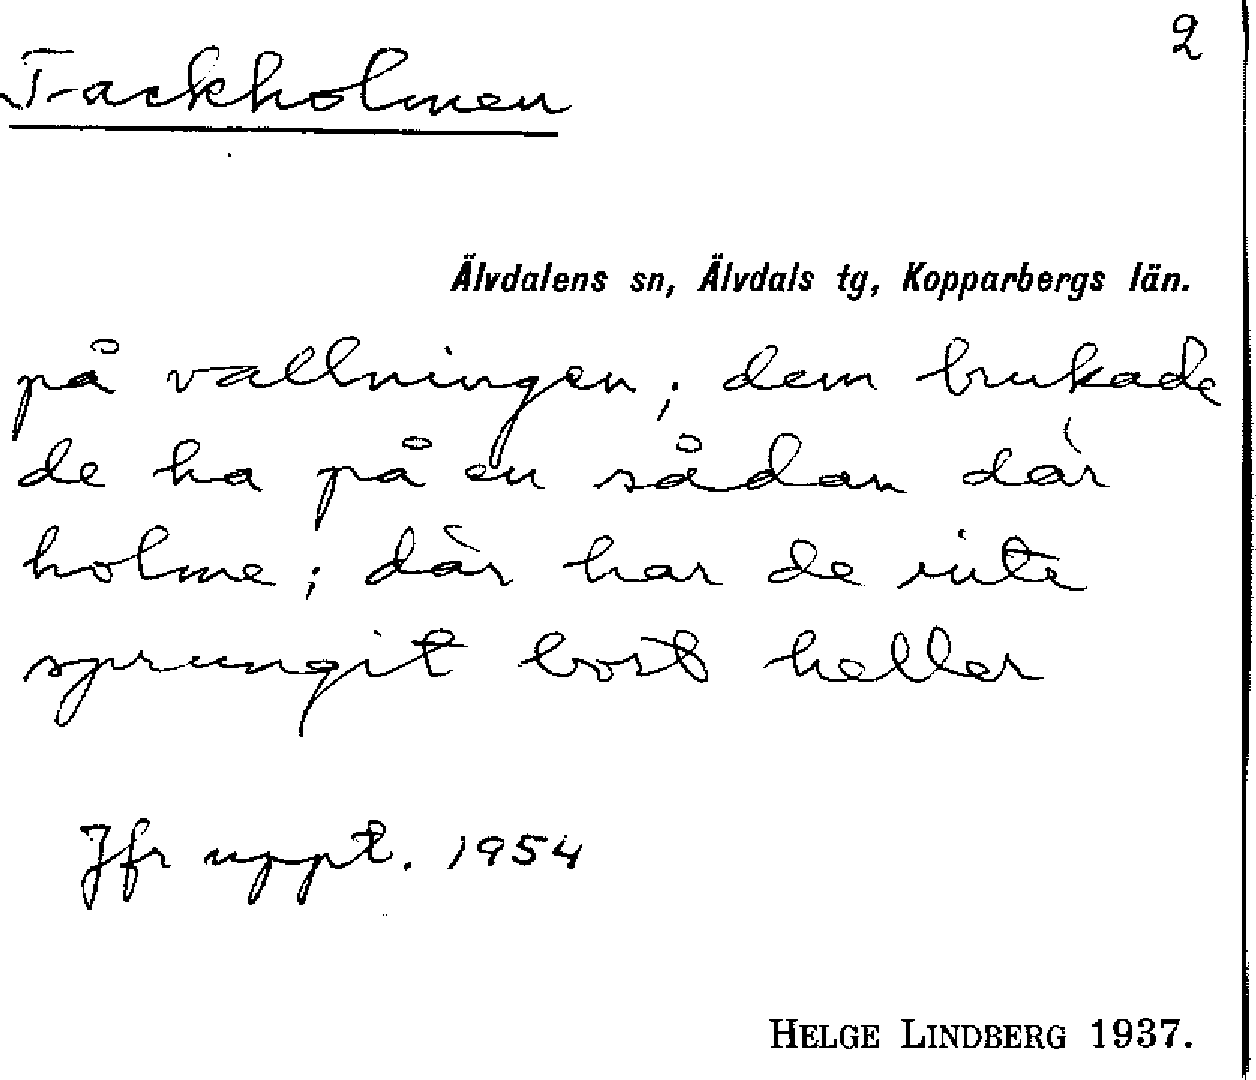 2
Tackholmen
Älvdalens sn, Älvdals tg, Kopparbergs län.
på vallningen; dem brukade
de ha på en sådan där
holme; där har de inte
sprungit bort heller
Jfr uppt. 1954
HELGE LINDBERG 1937.